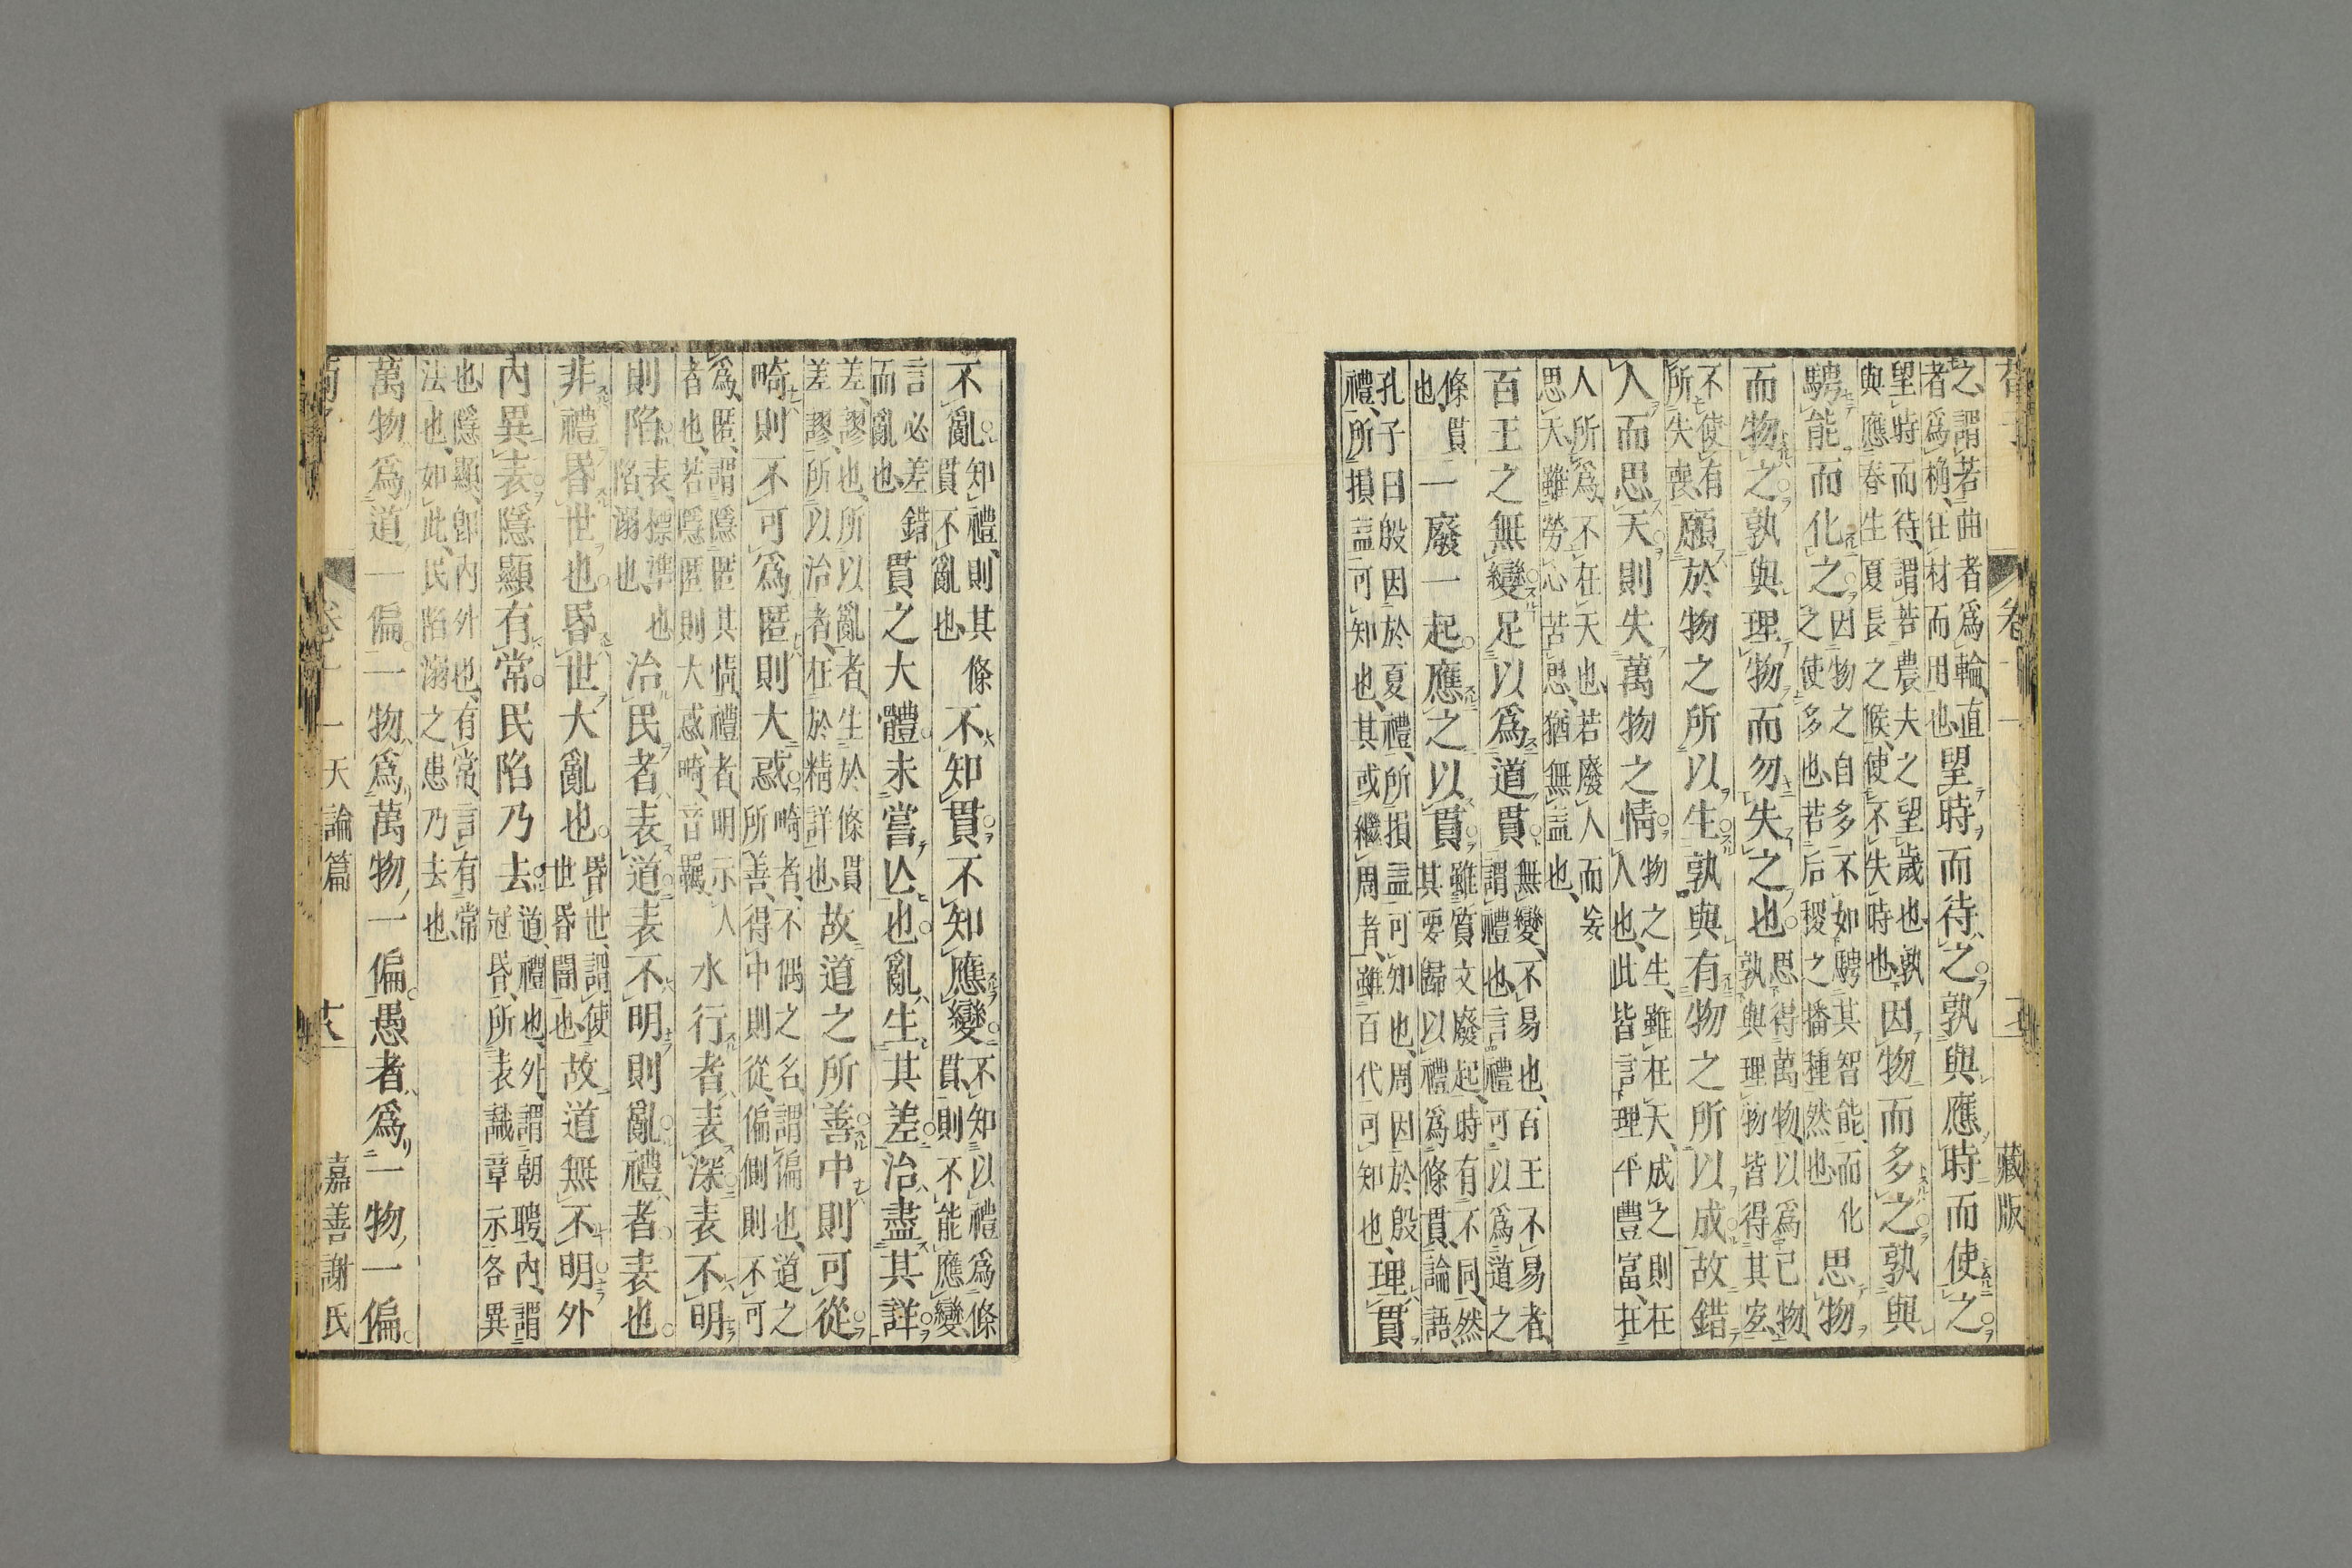 之、謂若曲者爲輪、直
者爲桷、任材而用也望時而待之孰與應時而使之
望時而待、謂若農夫之望歲也、孰
與應春生夏長之候、使不失時也因物而多之孰與
騁能而化之因物之自多、不如騁其智能而化
之使多也、若后稷之播種然也思物
而物之孰與理物而勿失之也思得萬物以爲己物、
孰與理物皆得其宜、
不使有
所失喪願於物之所以生孰與有物之所以成故錯
人而思天則失萬物之情物之生、雖在天、成之則在
人也、此皆言理平豐富、在
人所爲、不在天也、若廢人而妄
思天、雖勞心苦思、猶無益也、
百王之無變足以爲道貫無變、不易也、百王不易者、
謂禮也、言禮可以爲道之
條貫
也、一廢一起應之以貫雖質文廢起、時有不同、然
其要歸以禮爲條貫、論語、
孔子曰殷因於夏禮、所損益可知也、周因於殷
禮、所損益可知也、其或繼周者、雖百代可知也、理貫
藏版
不亂知禮則其條
貫不亂也不知貫不知應變不知以禮爲條
貫、則不能應變、
言必差錯
而亂也貫之大體未嘗亾也亂生其差治盡其詳
差、謬也、所以亂者、生於條貫
差謬、所以治者、在於精詳也故道之所善中則可從
畸則不可爲匿則大惑畸者、不偶之名、謂偏也、道之
所善、得中則從、偏側則不可
爲、匿、謂隱匿其情、禮者、明示人
者也、若隱匿則大惑、畸、音羈、水行者表深表不明
則陷表、標準也
陷、溺也、治民者表道表不明則亂禮者表也
非禮昏世也昏世大亂也昏世、謂使
世昏闇也故道無不明外
內異表隱顯有常民陷乃去道、禮也、外、謂朝聘、內、謂
冠昏、所表識章示各異
也、隱顯、卽內外也、有常、言有常
法也、如此、民陷溺之患乃去也、
萬物爲道一偏一物爲萬物一偏愚者爲一物一偏
卷十一 天論篇 十八 嘉善謝氏